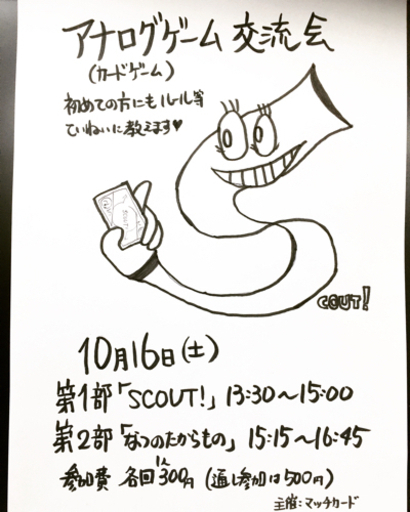 アナログゲーム 交流会
(カードゲーム)
初めての方にも ルール等
ていねいに教えます♥
SCOUT!
COUT!
10月16日(土)
第1部「SCOUT!」13:30〜15:00
第2部「なつのたからもの」15:15〜16:45
参加費 各回1人300円 (通し参加は500円)
主催:マッチカード